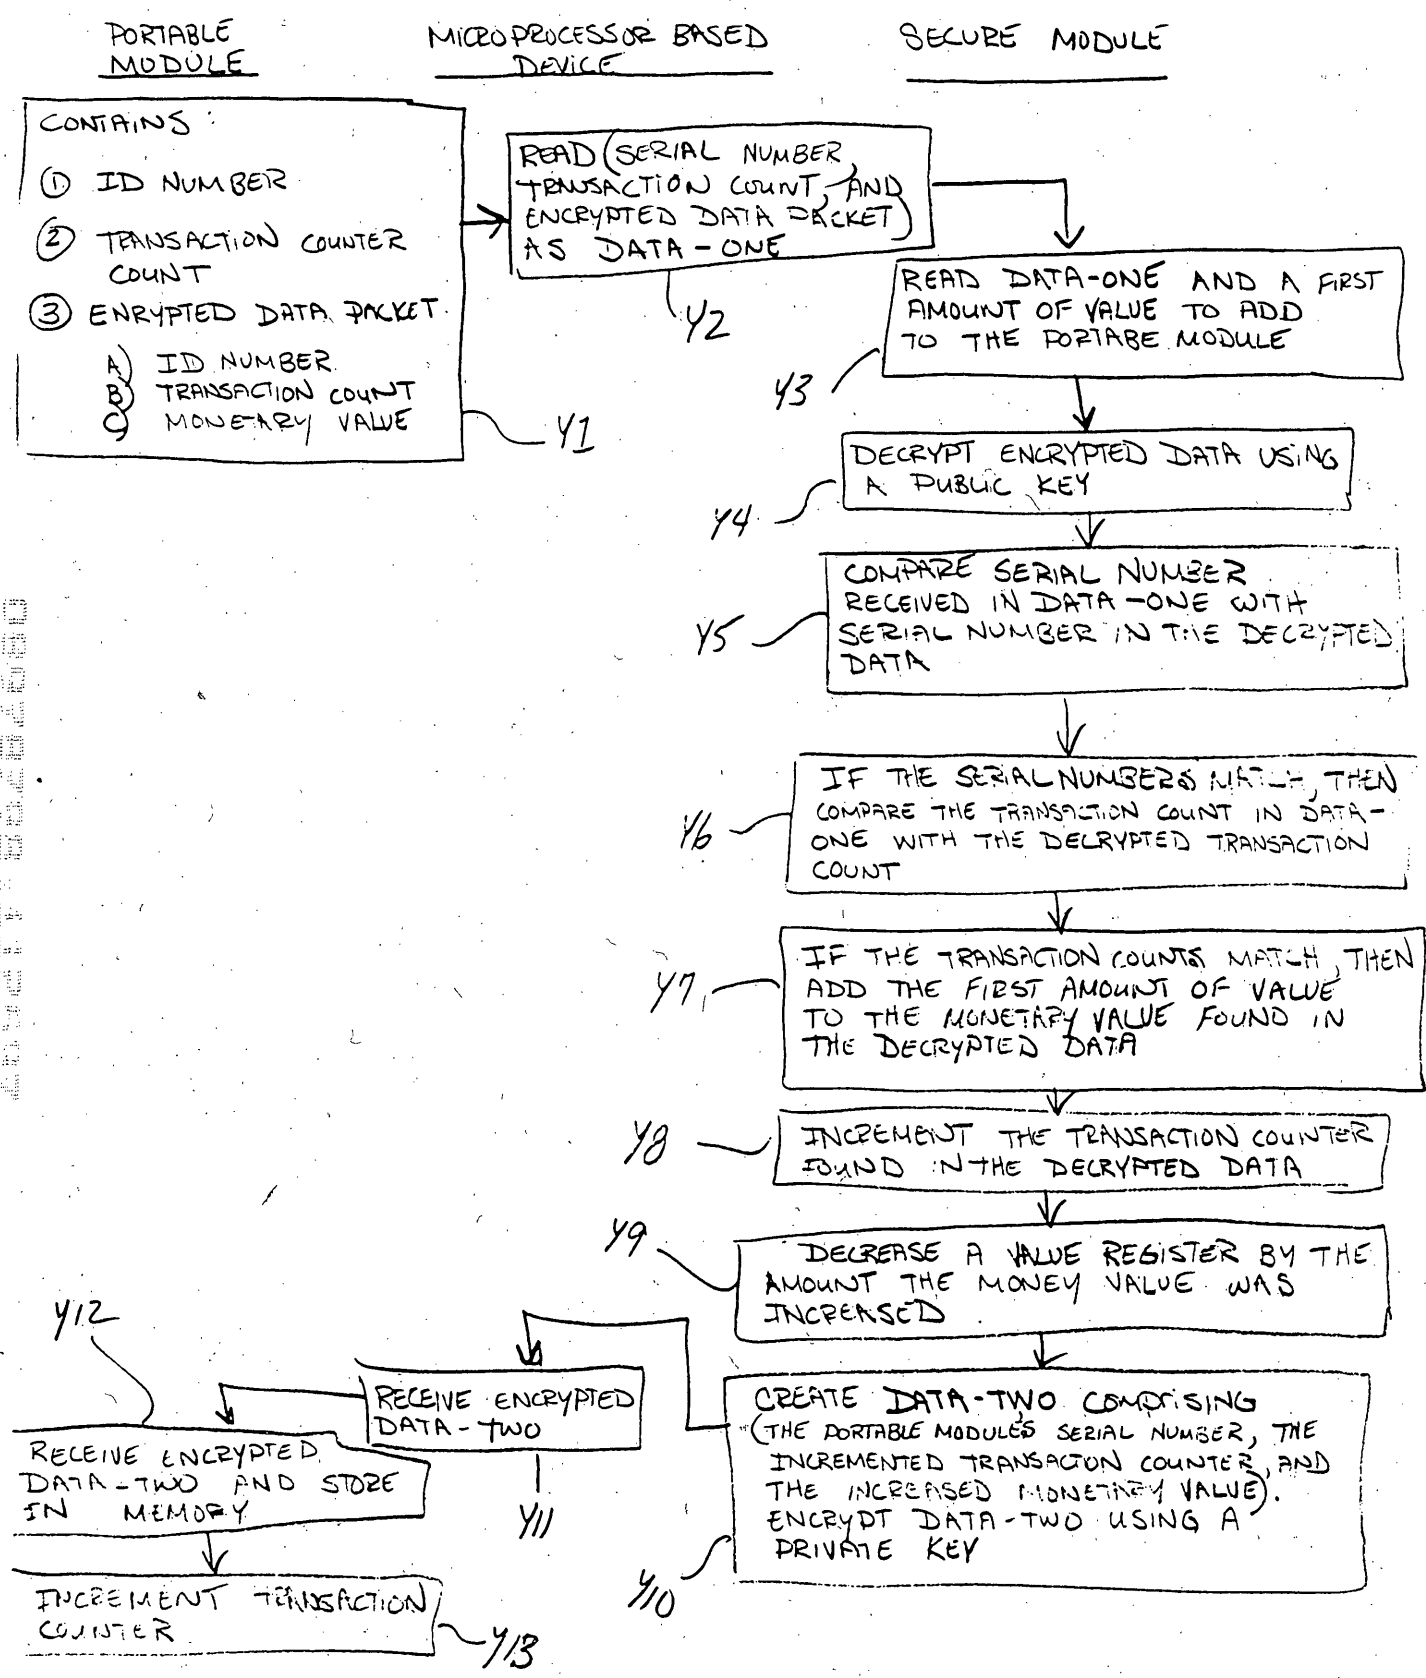 PORTABLE
MODULE
MICROPROCESSOR BASED
DEVICE
SECURE MODULE
CONTAINS:
① ID NUMBER
② TRANSACTION COUNTER
COUNT
③ ENRYPTED DATA PACKET
A) ID NUMBER
B) TRANSACTION COUNT
C) MONETARY VALUE
Y1
READ (SERIAL NUMBER,
TRANSACTION COUNT, AND
ENCRYPTED DATA PACKET)
AS DATA-ONE
Y2
READ DATA-ONE AND A FIRST
AMOUNT OF VALUE TO ADD
TO THE PORTABE MODULE
Y3
DECRYPT ENCRYPTED DATA USING
A PUBLIC KEY
Y4
COMPARE SERIAL NUMBER
RECEIVED IN DATA-ONE WITH
SERIAL NUMBER IN THE DECRYPTED
DATA
Y5
IF THE SERIAL NUMBERS MATCH, THEN
COMPARE THE TRANSACTION COUNT IN DATA-
ONE WITH THE DECRYPTED TRANSACTION
COUNT
Y6
IF THE TRANSACTION COUNTS MATCH, THEN
ADD THE FIRST AMOUNT OF VALUE
TO THE MONETARY VALUE FOUND IN
THE DECRYPTED DATA
Y7
INCREMENT THE TRANSACTION COUNTER
FOUND IN THE DECRYPTED DATA
Y8
DECREASE A VALUE REGISTER BY THE
AMOUNT THE MONEY VALUE WAS
INCREASED
Y9
CREATE DATA-TWO COMPRISING
(THE PORTABLE MODULE'S SERIAL NUMBER, THE
INCREMENTED TRANSACTON COUNTER, AND
THE INCREASED MONETARY VALUE).
ENCRYPT DATA-TWO USING A
PRIVATE KEY
Y10
RECEIVE ENCRYPTED
DATA-TWO
Y11
Y12
RECEIVE ENCRYPTED
DATA-TWO AND STORE
IN MEMORY
INCREMENT TRANSACTION
COUNTER
Y13